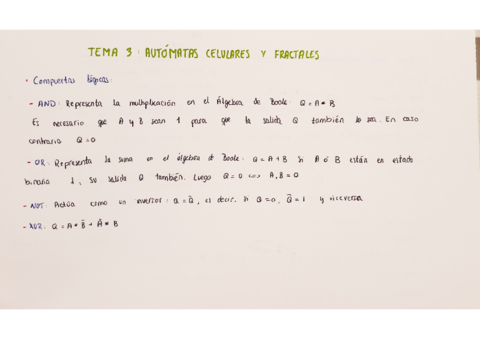 TEMA 3: AUTÓMATAS CELULARES Y FRACTALES
• Compuertas lógicas:
- AND: Representa la multiplicación en el Álgebra de Boole: Q = A * B
Es necesario que A y B sean 1 para que la salida Q también lo sea. En caso
contrario Q = 0
- OR: Representa la suma en el álgebra de Boole: Q = A + B Si A ó B están en estado
binario 1, su salida Q también. Luego Q = 0 <=> A, B = 0
- NOT: Actúa como un inversor: Q = Q̄, es decir, si Q = 0, Q̄ = 1 y viceversa
- XOR: Q = A * B̄ + Ā * B